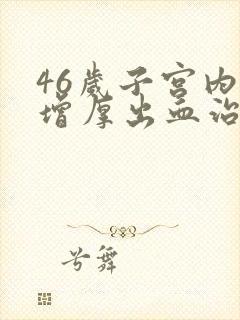 46岁子宫内
增厚出血治
兮舞